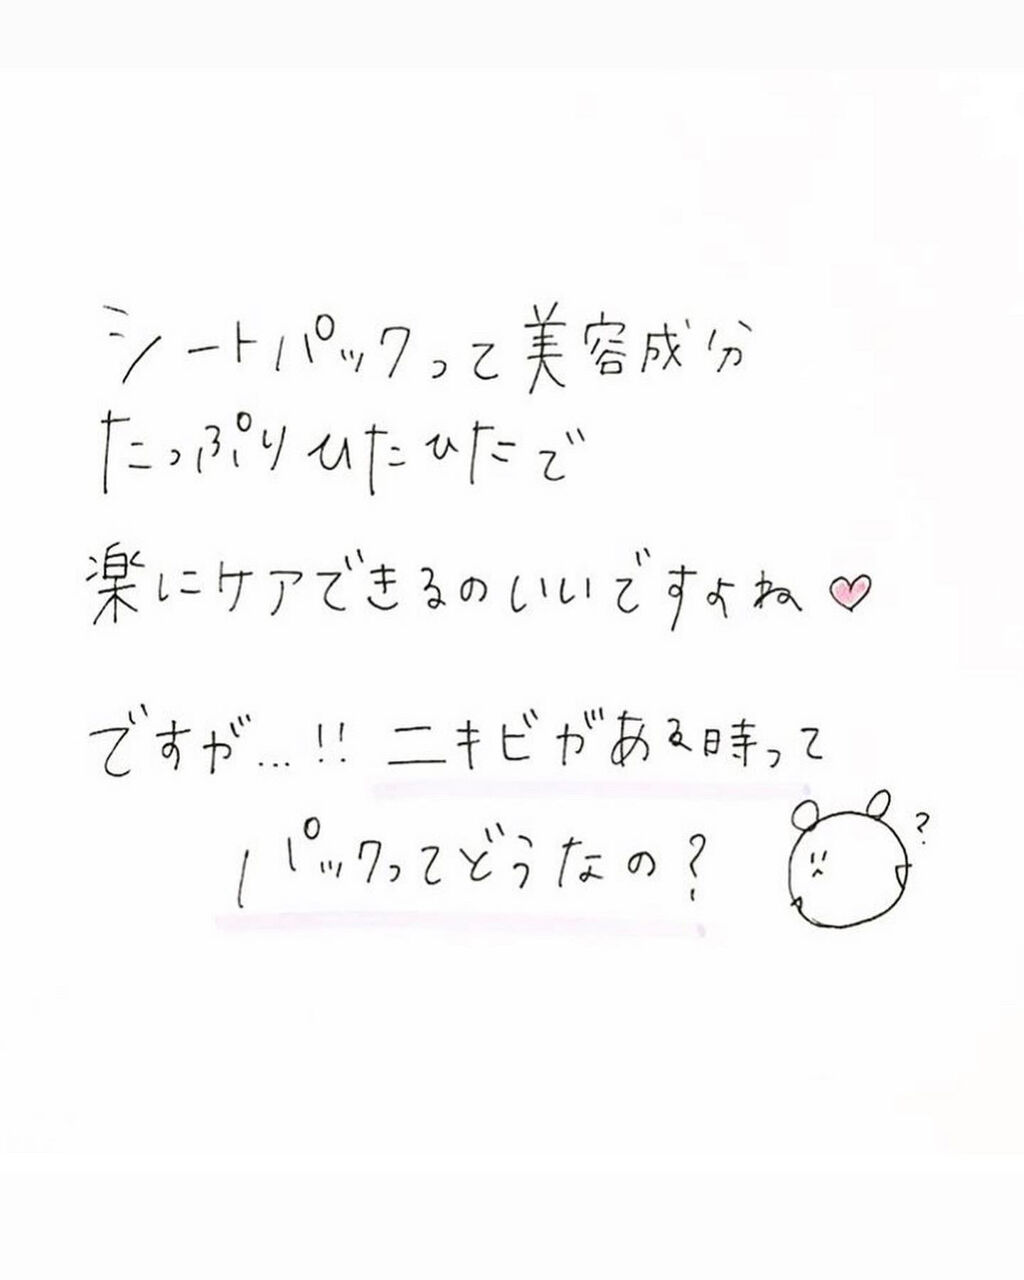 シートパックって美容成分
たっぷりひたひたで
楽にケアできるのいいですよね♡
ですが...!! ニキビがある時って
パックってどうなの?
?